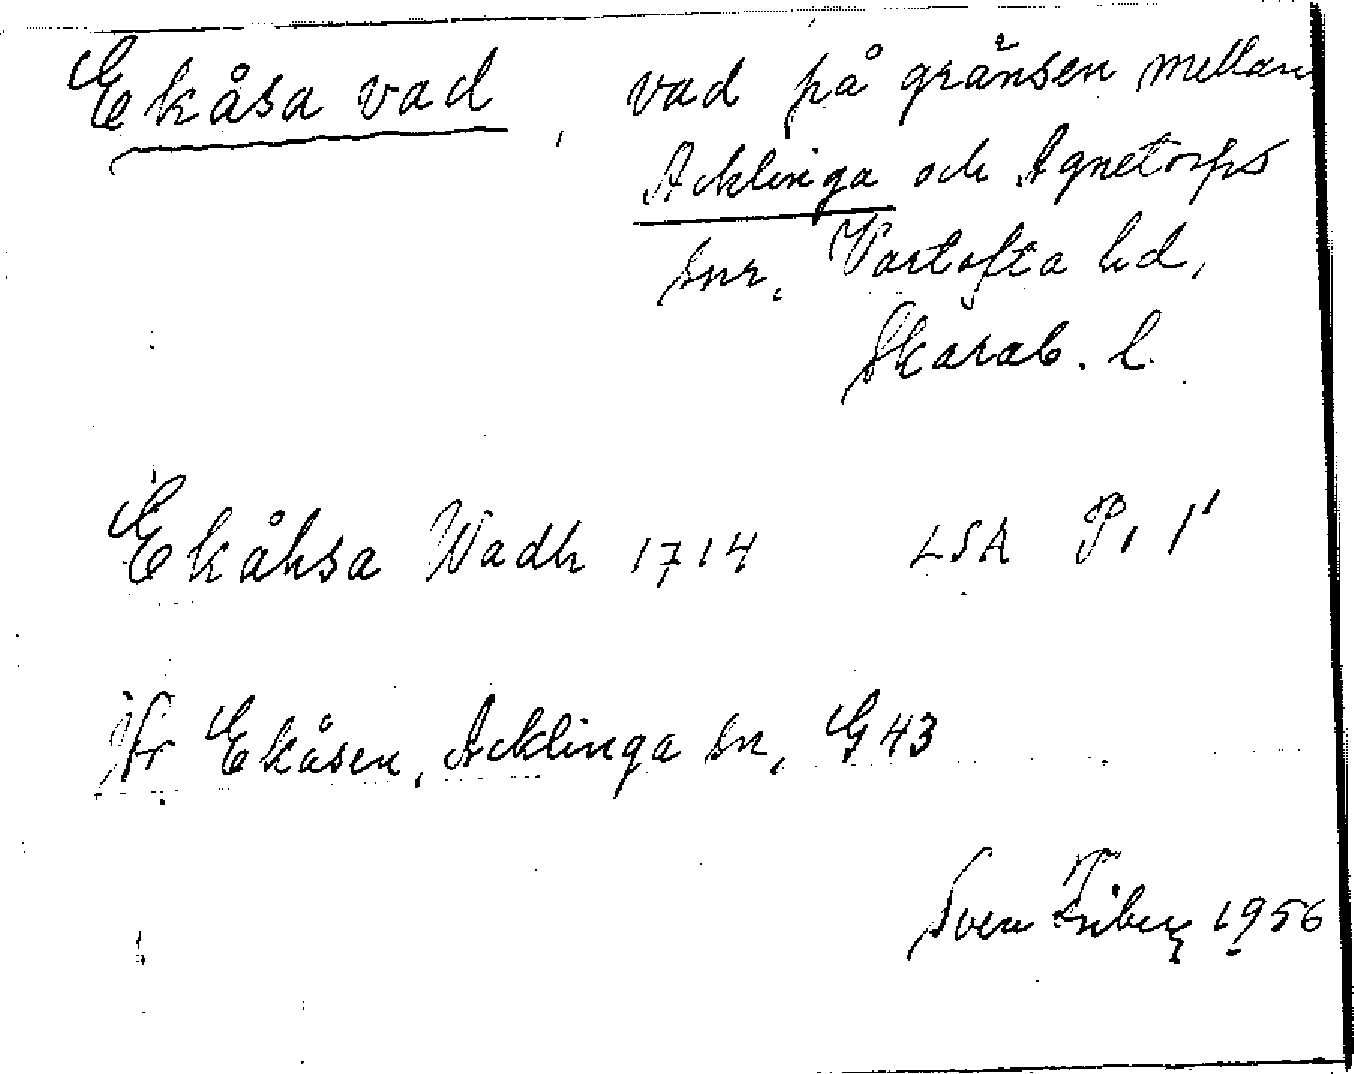 Ekåsa vad, vad på gränsen mellan
Acklinga och Agnetorps
snr, Vartofta hd,
Skarab. l.
Ekåhsa Wadh 1714 LSA P, 1'
Jfr Ekåsen, Acklinga sn, G 43
Sven Fribeg 1956